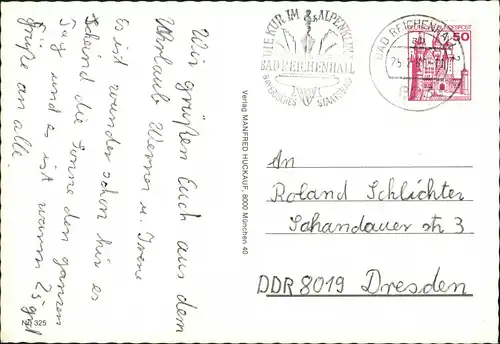 Wir grüßen Euch aus dem
Uhrlaub Werner u. Irene
Es ist wunder schön hir es
scheind die Sonne den ganzen
Tag und es ist warm 25 grd
Grüße an alle.
Nr. 325
Verlag MANFRED HUCKAUF, 8000 München 40
DIE KUR IM ALPENKLIMA
BAD REICHENHALL
BAYERISCHES STAATSBAD
BAD REICHENHALL 2
50
An
Roland Schlichter
Schandauer str 3
DDR 8019 Dresden